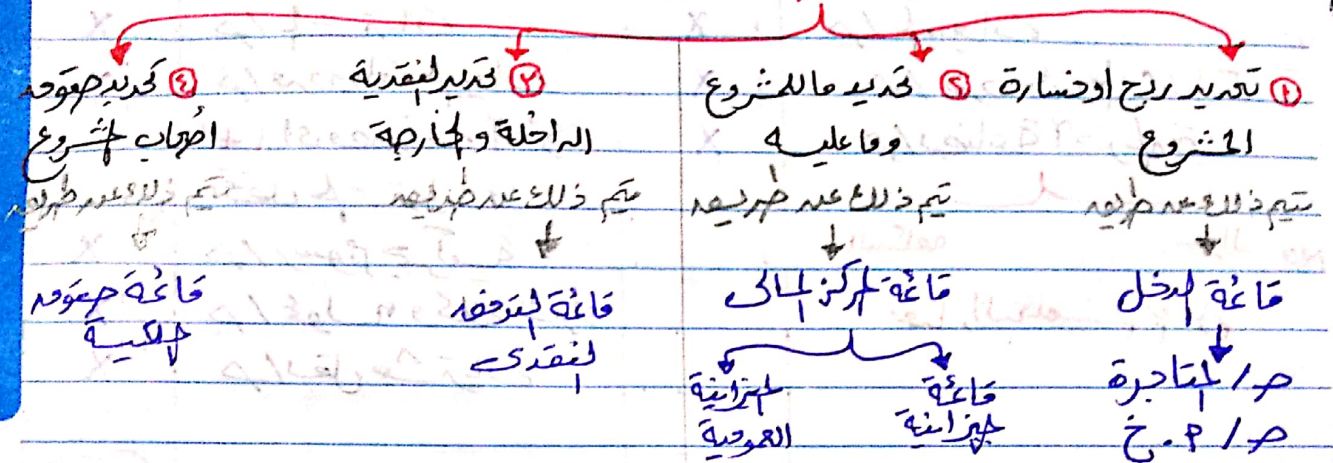 ① تحديد ربح او خسارة
المشروع
يتم ذلك عن طريق
قائمة الدخل
حـ/ المتاجرة
حـ/ أ . خ
② تحديد ما للمشروع
وما عليه
يتم ذلك عن طريق
قائمة المركز المالى
قائمة
الميزانية
الميزانية
العمومية
③ تحديد النقدية
الداخلة والخارجة
يتم ذلك عن طريق
قائمة التدفق
النقدى
④ تحديد حقوق
اصحاب المشروع
يتم ذلك عن طريق
قائمة حقوق
الملكية